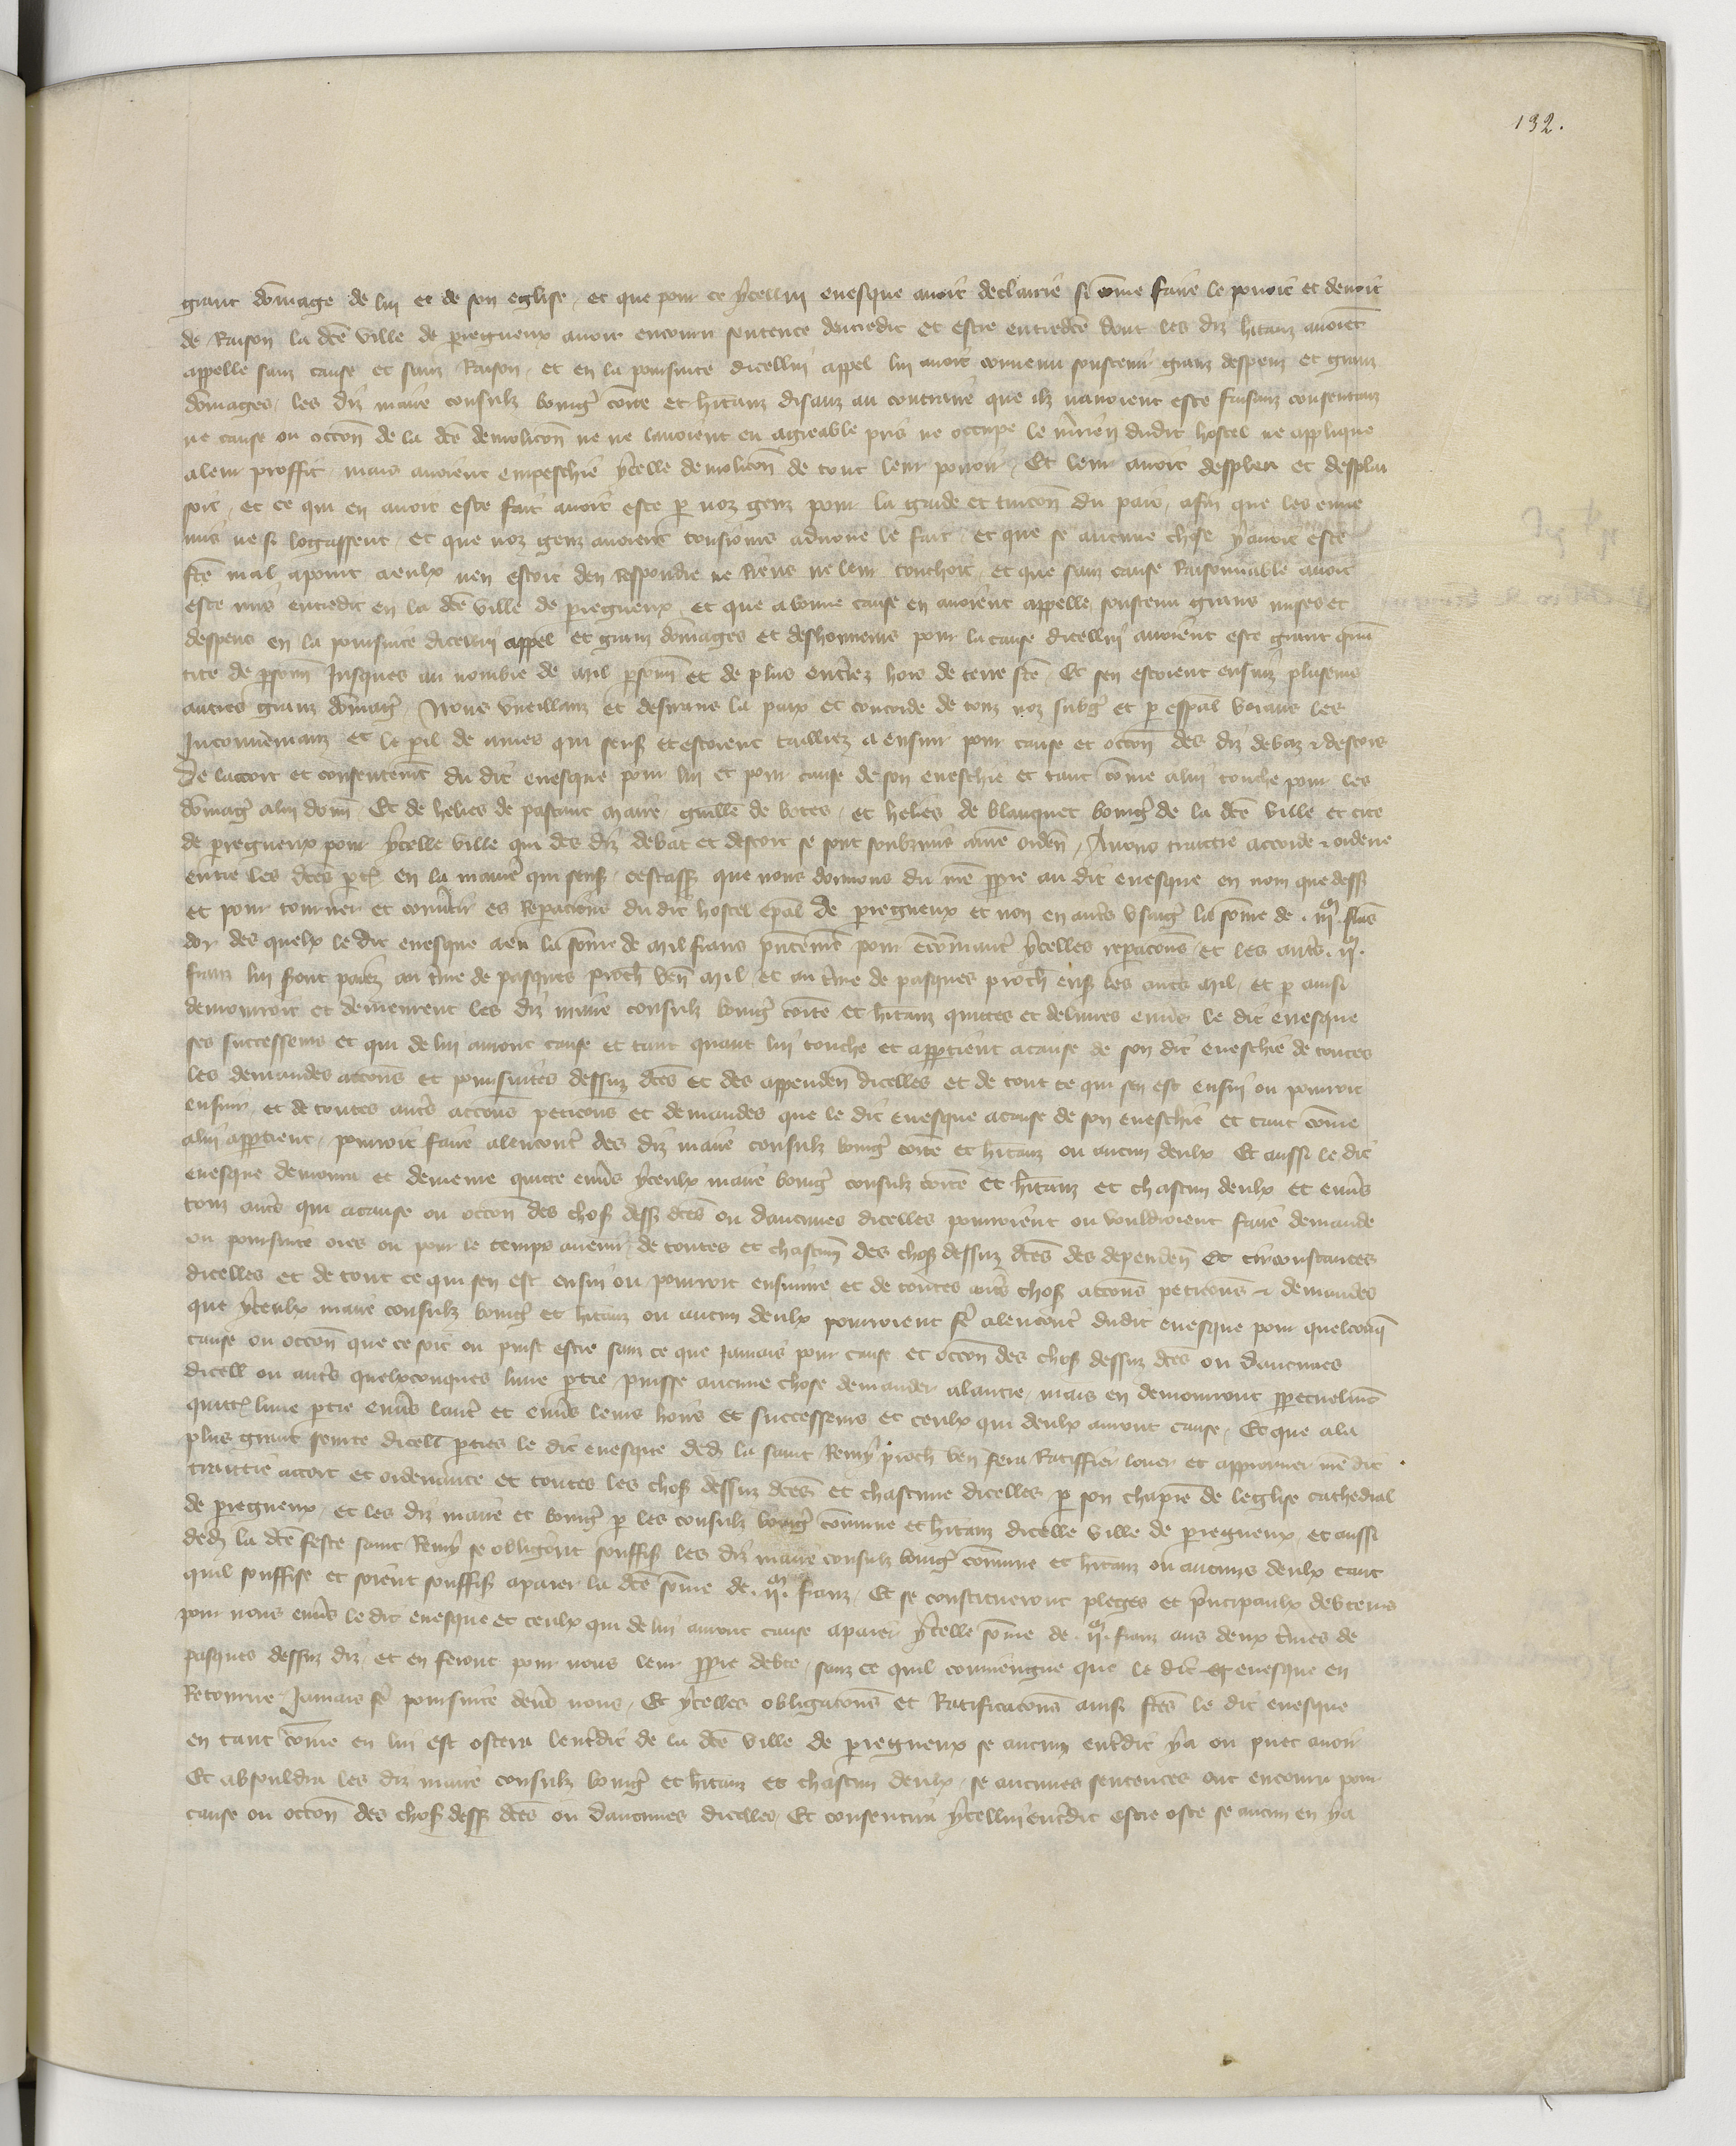 132.
grant dōmage de lui et de son eglise / et que pour ce ycellui evesque avoit declairie si cōme faire le povoit et devoit
de Raison la dcē ville de pieregueux avoir encouru sentence dentredit et estre entredcē dont les diz hītanz avoiēt
appelle sanz cause et sanz Raison / et en la poursuite dicellui appel lui avoit convenu soustenir granz despenz et granz
dōmages / les diz maire consulz bourg̃ cōite et hītanz disanz au contraire que ilz navoient este faisanz consentanz
ne cause ou occōn de la dcē demolicōn ne ne lavoient eu agreable pris ne occupe le m̃rien dudit hostel ne applique
a leur proffit / mais avoient empeschie ycelle demolicōn de tout leur povoir / Et leur avoit despleu et desplai
soit / et ce qui en avoit este fait avoit este p noz genz pour la garde et tuicōn du pais / afin que les enne
mis ne si logassent / et que noz genz avoient tousiours advoue le fait / et que se aucune chose y avoit este
fcē mal apoint a eulx nen estoit den Respondre ne Riens ne leur touchoit / et que sanz cause Raisonnable avoit
este mis entredit en la dcē ville de pieregueux / et que a bonne cause en avoient appelle soustenu grans mises et
despens en la poursuite dicellui appel et granz dōmages et deshonneurs pour la cause dicellui avoient este grant quā
tite de psonn̄ Jusques au nombre de mil psonn̄ et de plus enterrez hors de terre scē / Et sen estoient ensuiz plusieurs
autres granz dōmag̃ / Nous vueillanz et desirans la paix et concorde de touz noz subg̃ et p espāl voians les
Inconvenianz et le pil de ames qui sens et estoient tailliez a ensuir pour cause et occōn des diz debaz & descors
De lacort et consentem̄t du dit evesque pour lui et pour cause de son eveschie et tant cōme a lui touche pour les
dōmag̃ a lui donn̄ / Et de helies de pastant maire / guillē de botes / et helies de blanquet bourg̃ de la dcē ville et cite
de pieregueux pour ycelle ville qui des diz debat et descort se sont soubzmis a nrē ordēn / Avons traictie accorde & ordene
entre les dcēs pt̃ en la manie qui sens / cestass que nous donrons du nr̄e ppre au dit evesque en nom que dess
et pour tourner et convtir es Repacions du dit hostel epāl de pieregueux et non en autres usaig̃ la sōme de .iijᵐ. frās
dor des quelx le dit evesque a eu la sōme de mil frans pn̄tem̄t pour cōmanc̃ ycelles repacōns / et les autres .ijᵐ.
franz lui sont paiez au tme de pasques proch̄ ven̄ mil / et au tme de pasques proch̄ ens les autres mil / et p ainsi
demourroit et demeurent les diz maire consulz bourg̃ cōite et hītanz quittes et delivres envs le dit evesque
ses successeurs et qui de lui auront cause et tant quant lui touche et apptient a cause de son dit eveschie de toutes
les demandes accōns et poursuites dessuz dcēs et des appenden̄ dicelles et de tout ce qui sen est ensui ou pourroit
ensuir / et de toutes autres accōns peticōns et demandes que le dit evesque a cause de son eveschie et tant cōme
a lui apptient / pourroit faire a lencont̃ des diz maire consulz bourg̃ cōite et hītanz ou aucun deulx Et aussi le dit
evesque demourra et demeure quitte envs yceulx maire bourg̃ consulz cōite et hītanz et chascun deulx et envs
touz autres qui a cause ou occōn des chos dess dcēs ou daucunes dicelles pourroient ou vouldroient faire demande
ou poursuite ores ou pour le temps avenir de toutes et chascun̄ des chos dessuz dcēs des dependen̄ Et circonstances
dicelles et de tout ce qui sen est ensui ou pourroit ensuiure et de toutes autres chos accōns peticōns & demandes
que yceulx maire consulz bourg̃ et hītanz ou aucun deulx pourroient fē a lencont̃ dudit evesque pour quelconq̄
cause ou occōn que ce soit ou puist estre sanz ce que Jamais pour cause et occōn des chos dessuz dcēs ou daucunes
dicell ou autres quelxconques lune ptie puisse aucune chose demander a lautre / mais en demourront ppetuelm̄t
quitt̃ lune ptie envs laut̃ et envs leurs hoirs et successeurs et ceulx qui deulx auront cause / Et que a la
plus grant seurte dicell pties le dit evesque dedē la saint Remy proch̄ ven̄ fera Ratiffier louer et approuver nr̄e dit
traittie accort et ordenance et toutes les chos dessuz dcēs et chascune dicelles p son chapītre de leglise cathedral
de pieregueux / et les diz maire et bourg̃ p les consulz bourg̃ cōmune et hītanz dicelle ville de pieregueux / et aussi
dedē la dcē feste saint Remy se obligeront souffis les diz maire consulz bourg̃ cōmune et hītanz ou aucuns deulx tant
quil souffise et soient souffis a paier la dcē sōme de .ijᵐ. franz / Et se constitueront pleges et principaulx debteurs
pour nous envs le dit evesque et ceulx qui de lui auront cause a paier ycelle sōme de .ijᵐ. franz aus deux tmes de
pasques dessuz diz / et en feront pour nous leur ppre debte / sanz ce quil conviengne que le dit evesque en
Retourne Jamais fē poursuite devs nous / Et ycelles obligacōns et Ratificacōns ainsi fcēs le dit evesque
en tant cōme en lui est ostera lentdit de la dcē ville de pieregueux se aucun entdit y a ou puet avoir
Et absouldra les diz maire consulz bourg̃ et hītanz et chascun deulx / se aucunes sentences ont encouru pour
cause ou occōn des chos dess dcēs ou daucunes dicelles / Et consentira ycellui entdit estre oste se aucun en y a